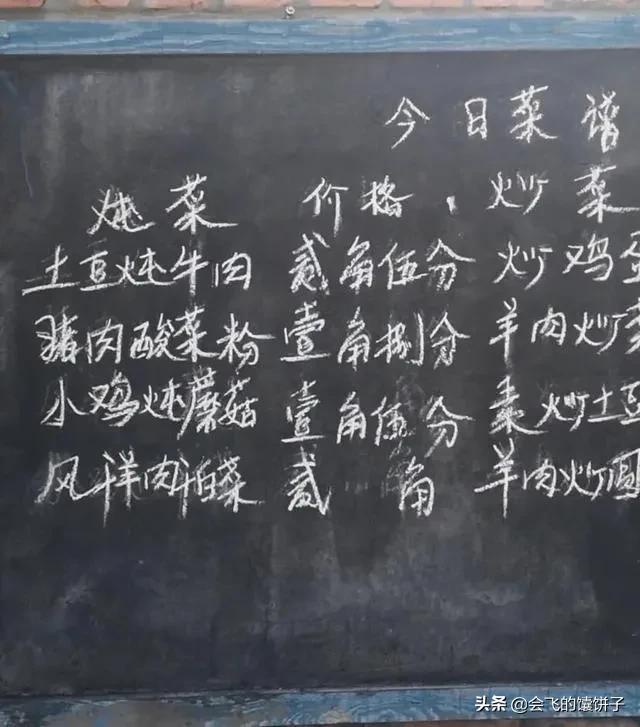 今日菜谱
炖菜 价格、炒菜
土豆炖牛肉 贰角伍分 炒鸡蛋
猪肉酸菜粉 壹角捌分 羊肉炒
小鸡炖蘑菇 壹角伍分 素炒土豆
风洋肉 贰角 羊肉炒圆
头条 @会飞的馕饼子